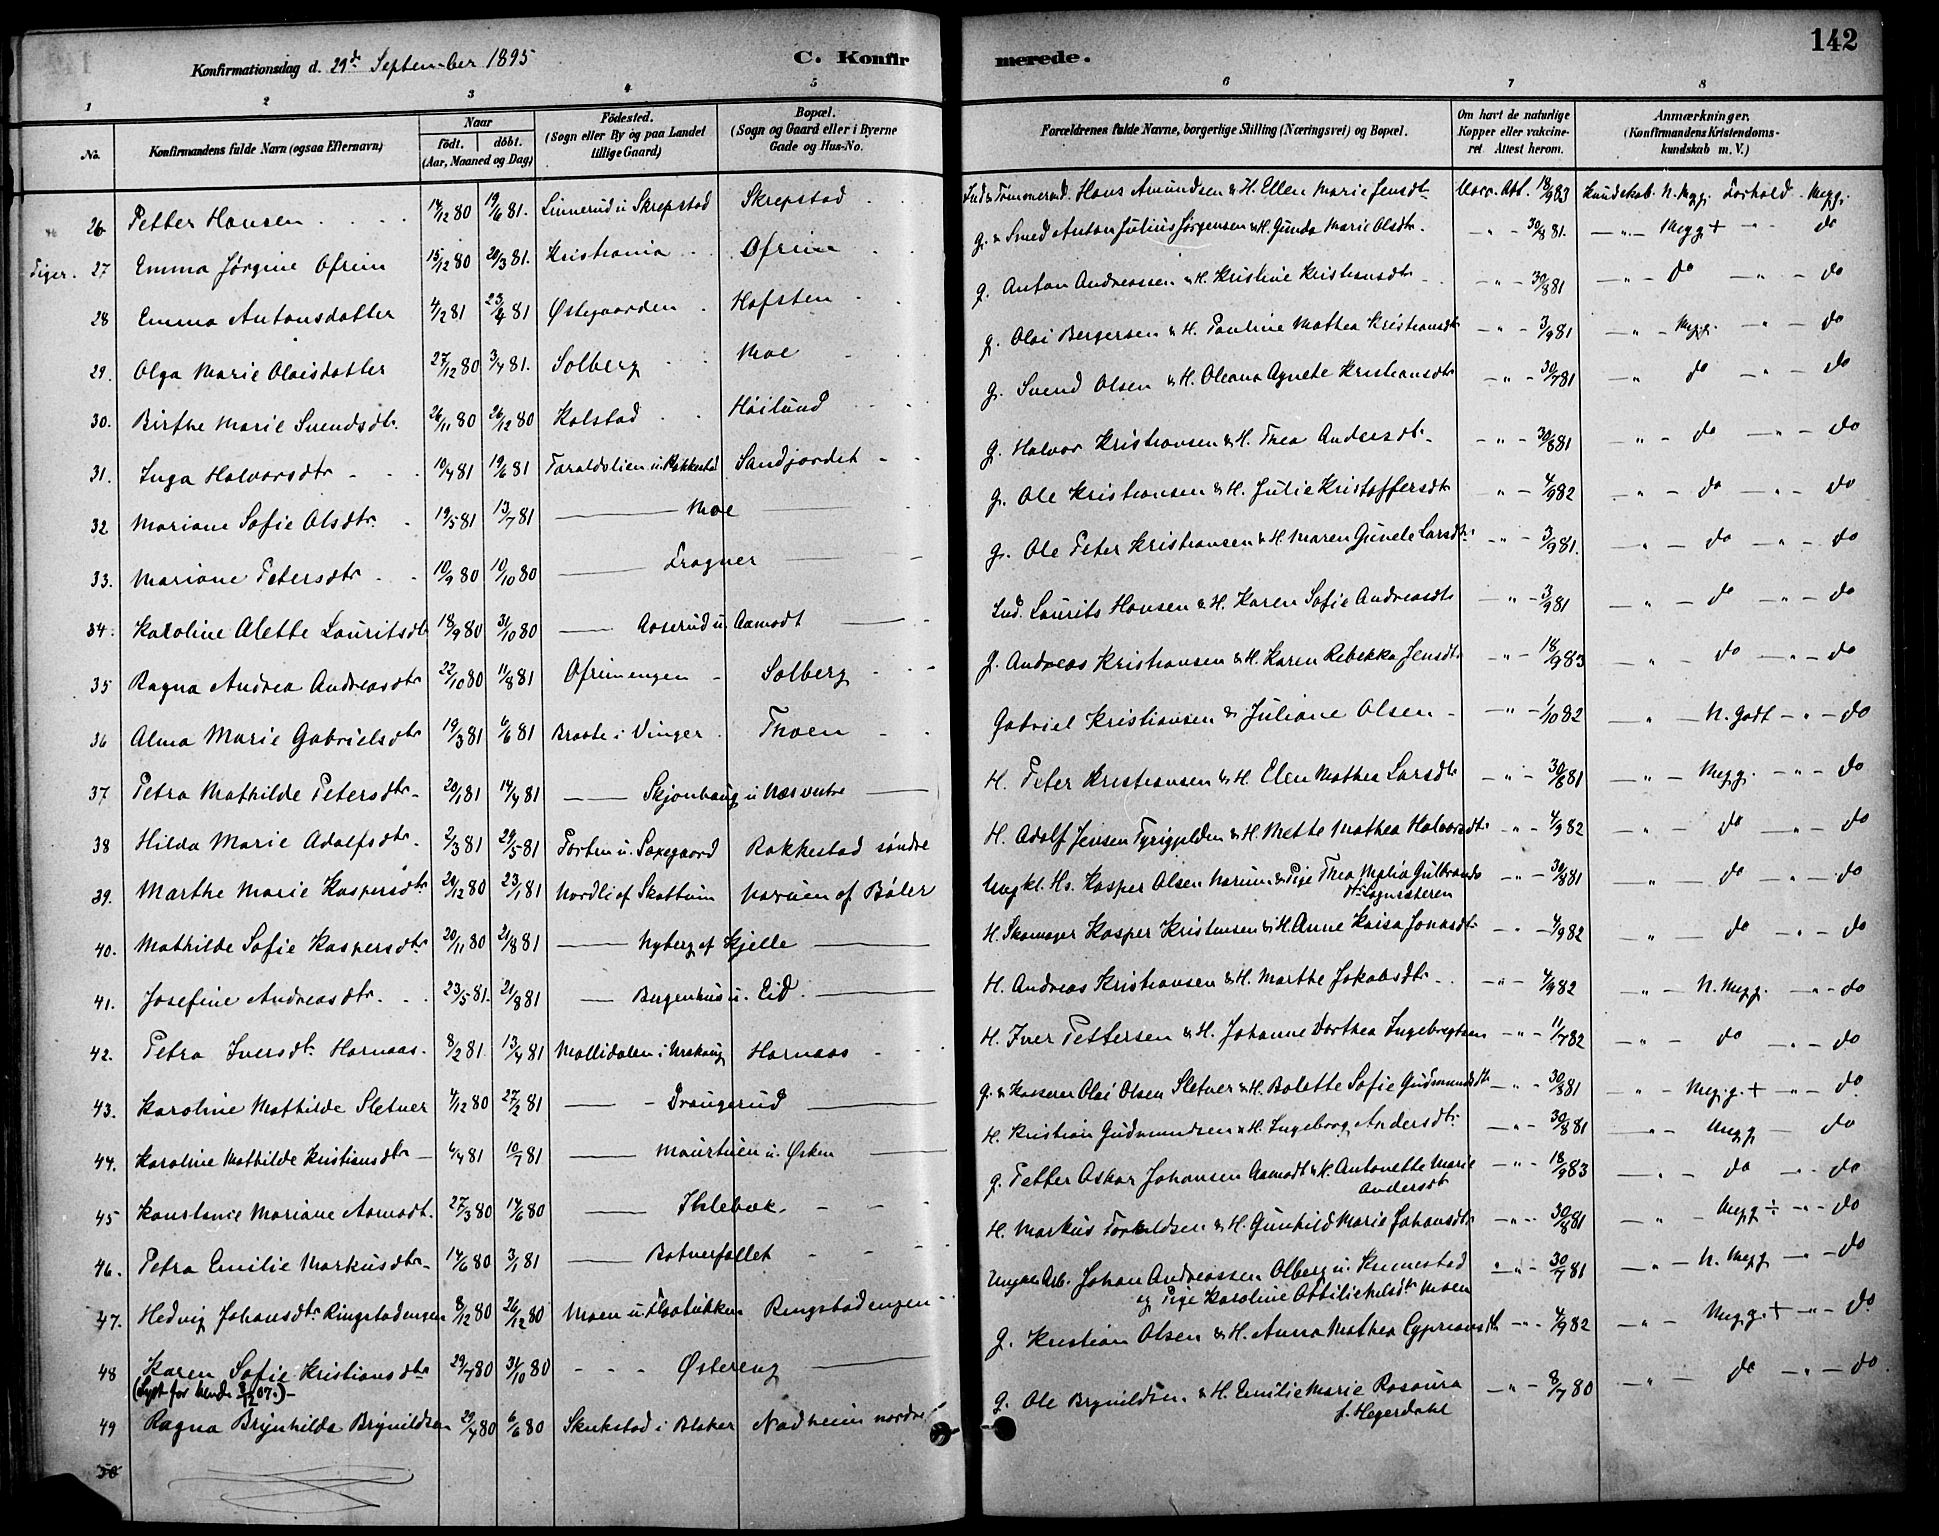 142
Konfirmationsdag d. 29de September 1895
C. Konfirmerede.
1 2 3 4 5 6 7 8
No. Konfirmandens fulde Navn (ogsaa Efternavn) Naar født. døbt. (Aar, Maaned og Dag) Fødested. (Sogn eller By og paa Landet tillige Gaard) Bopæl. (Sogn og Gaard eller i Byerne Gade og Hus-No. Forældrenes fulde Navne, borgerlige Stilling (Næringsvei) og Bopæl. Om havt de naturlige Kopper eller vakcineret Attest herom. Anmærkninger. (Konfirmandens Kristendomskundskab m. V.)
26 Petter Hansen 14/12 80 19/6 81. Linnerud u Skrepstad Skrepstad Ind. Tømmerud Hans Amundsen & H. Ellen Marie Jensdtr Vacc. Att. 18/9 83 Kundskab N. Megg. Forhold Megg.
Piger. 27 Emma Jørgine Ofrim 15/12 80 20/3 81. Kristiania Ofrim G. & Smed Anton Julius Jørgensen & H. Gunda Marie Olsdtr. — " — 30/8 81. — " — Megg + — " — do
28 Emma Antonsdatter 4/2 81 23/4 81 Østegaarden Hofsten G. Anton Andreassen & H. Kristine Kristiansdtr — " — 30/8 81 — " — do — " — do
29. Olga Marie Olaisdatter 27/12 80 3/4 81. Solberg Moe G. Olai Bergersen & H. Pauline Mathea Kristiansdtr — " — 3/9 81 — " — Megg. — " — do
30. Birthe Marie Svendsdtr. 26/11 80 26/12 80 Kolstad Høilund G. Svend Olsen & H. Oleana Agnete Kristiansdtr — " — 30/7 81 — " do — " — do
31. Inga Halvorsdtr 10/4 81 19/6 81 Taraldslien u. Rakkestad Sandjordet G. Halvor Kristiansen & H. Thea Andersdtr. — " — 30/8 81 — " — do — " — do
32 Mariane Sofie Olsdtr. 19/5 81 13/7 81 — Moe — G. Ole Kristiansen & H. Julie Kristoffersdtr " — 4/9 82 — " — do — " — do
33. Mariane Petersdtr 10/9 80 10/10 80 — Fragner — G. Ole Peter Kristiansen & H. Maren Gunele Larsdtr. — " — 3/9 81. — " — do — " — do
34. Karoline Alette Lauritsdtr 18/9 80 31/10 80 — Aaserud u. Aamodt — Ind. Laurits Hansen & H. Karen Sofie Andreasdtr — " — 3/9 81 — " — do — " — do
35 Ragna Andrea Andreasdtr 22/10 80 11/8 81 Ofrimengen Solberg G. Andreas Kristiansen & H. Karen Rebekka Jensdtr. — " — 18/9 83 — " — do — " — do
36 Alma Marie Gabrielsdtr 19/3 81 6/6 81 Braate i Vinger Thoen Gabriel Kristiansen & Juliane Olsen — " — 1/10 82 — " — N. Godt — " — do
37 Petra Mathilde Petersdtr. 20/1 81 14/4 81 — Skjonhaug u Næs vestre — H. Peter Kristiansen & H. Elen Mathea Larsdtr — " — 30/8 81 — " — Megg. — " — do
38 Hilda Marie Adolfsdtr. 2/3 81 29/5 81 Porten u. Saxegaard Rakkestad søndre H. Adolf Jensen Tyrigjelden & H. Mette Mathea Halvorsdtr. — " — 4/9 82 — " — do — " — do
39. Marthe Marie Kaspersdtr 29/12 80 23/1 81 Nordli af Skattum Naruen af Bøler Ungkl. Hs. Kasper Olsen Narum & Pige Thea Matia Gulbrandsdtr — " — 30/8 81 — " — do — " — do
40. Mathilde Sofie Kaspersdtr 20/11 80 21/8 81 — Nyberg af Kjelle — H. Skomager Kasper Kristensen & H. Anne Kaisa Jonasdtr — " — 4/9 82 — " — do — " — do
41. Josefine Andreasdtr. 23/5 81. 21/8 81 — Bergenhus u. Eid. — H. Andreas Kristiansen & H. Marthe Jakobsdtr. — " — 4/9 82 — " — N. Megg. — " — do
42. Petra Iversdtr. Harnaas. 8/2 81 13/4 81 Mollidalen i Urskoug Harnaas H. Iver Pettersen & H. Johanne Dorthea Ingebregtsen — " — 11/7 82 — " — do — " — do
43. Karoline Mathilde Sletner 4/12 80 27/2 81 — Draugerud — G. & Kasserer Olai Olsen Sletner & H. Bolette Sofie Gudmundsdtr — " — 30/8 81 — " — Megg. + — " — do
44. Karoline Mathilde Kristiansdtr 4/4 81 10/7 81 — Maurtuen u. Ørken — H. Kristian Gudmundsen & H. Ingeborg Andersdtr. — " — 30/8 81 — " — Megg — do
45 Konstance Mariane Aamodt. 27/3 80 14/6 80 — Ihlebæk. G. Petter Oskar Johansen Aamodt & H. Antonette Marie Andersdtr — " — 18/9 83 — " — do — " — do
46. Petra Emilie Markusdtr. 14/6 80 3/1 81 — Botnerfallet H. Markus Torkildsen & H. Gunhild Marie Johansdtr. — " — 30/8 81 — " — Megg ÷ — " — do
47. Hedvig Johansdtr. Ringstadengen 8/12 80 26/12 80 Moen u Ringstadengen Johan Andreassen Olberg u. Kinnestad
og Pige Karoline Ottilie Moen — " — 30/7 81 — " — N. Megg — " — do
48 Karen Sofie Kristiansdtr 29/7 80 31/10 80 — Østereng — G. Kristian Olsen & H. Anna Mathea Cypriansdtr — " — 4/9 82 — " — Megg. + — " — do
(Lyst for hende 3/2 07.)
49 Ragna Brynhilda Brynildsen 29/4 80 6/6 80 Skukstad i Blaker Nadheim nordre G. Ole Brynildsen & H. Emilie Marie Rosaura
f. Hegerdahl — " — 8/7 80 — " — do — " — do.
50